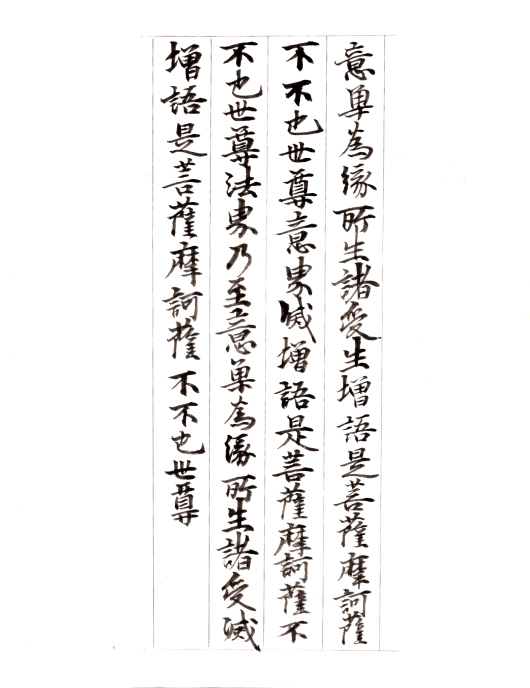 意單為緣所生諸受生增語是菩薩摩訶薩
不不也世尊意界滅增語是菩薩摩訶薩不
不也世尊法界乃至意單為緣所生諸受滅
增語是菩薩摩訶薩不不也世尊